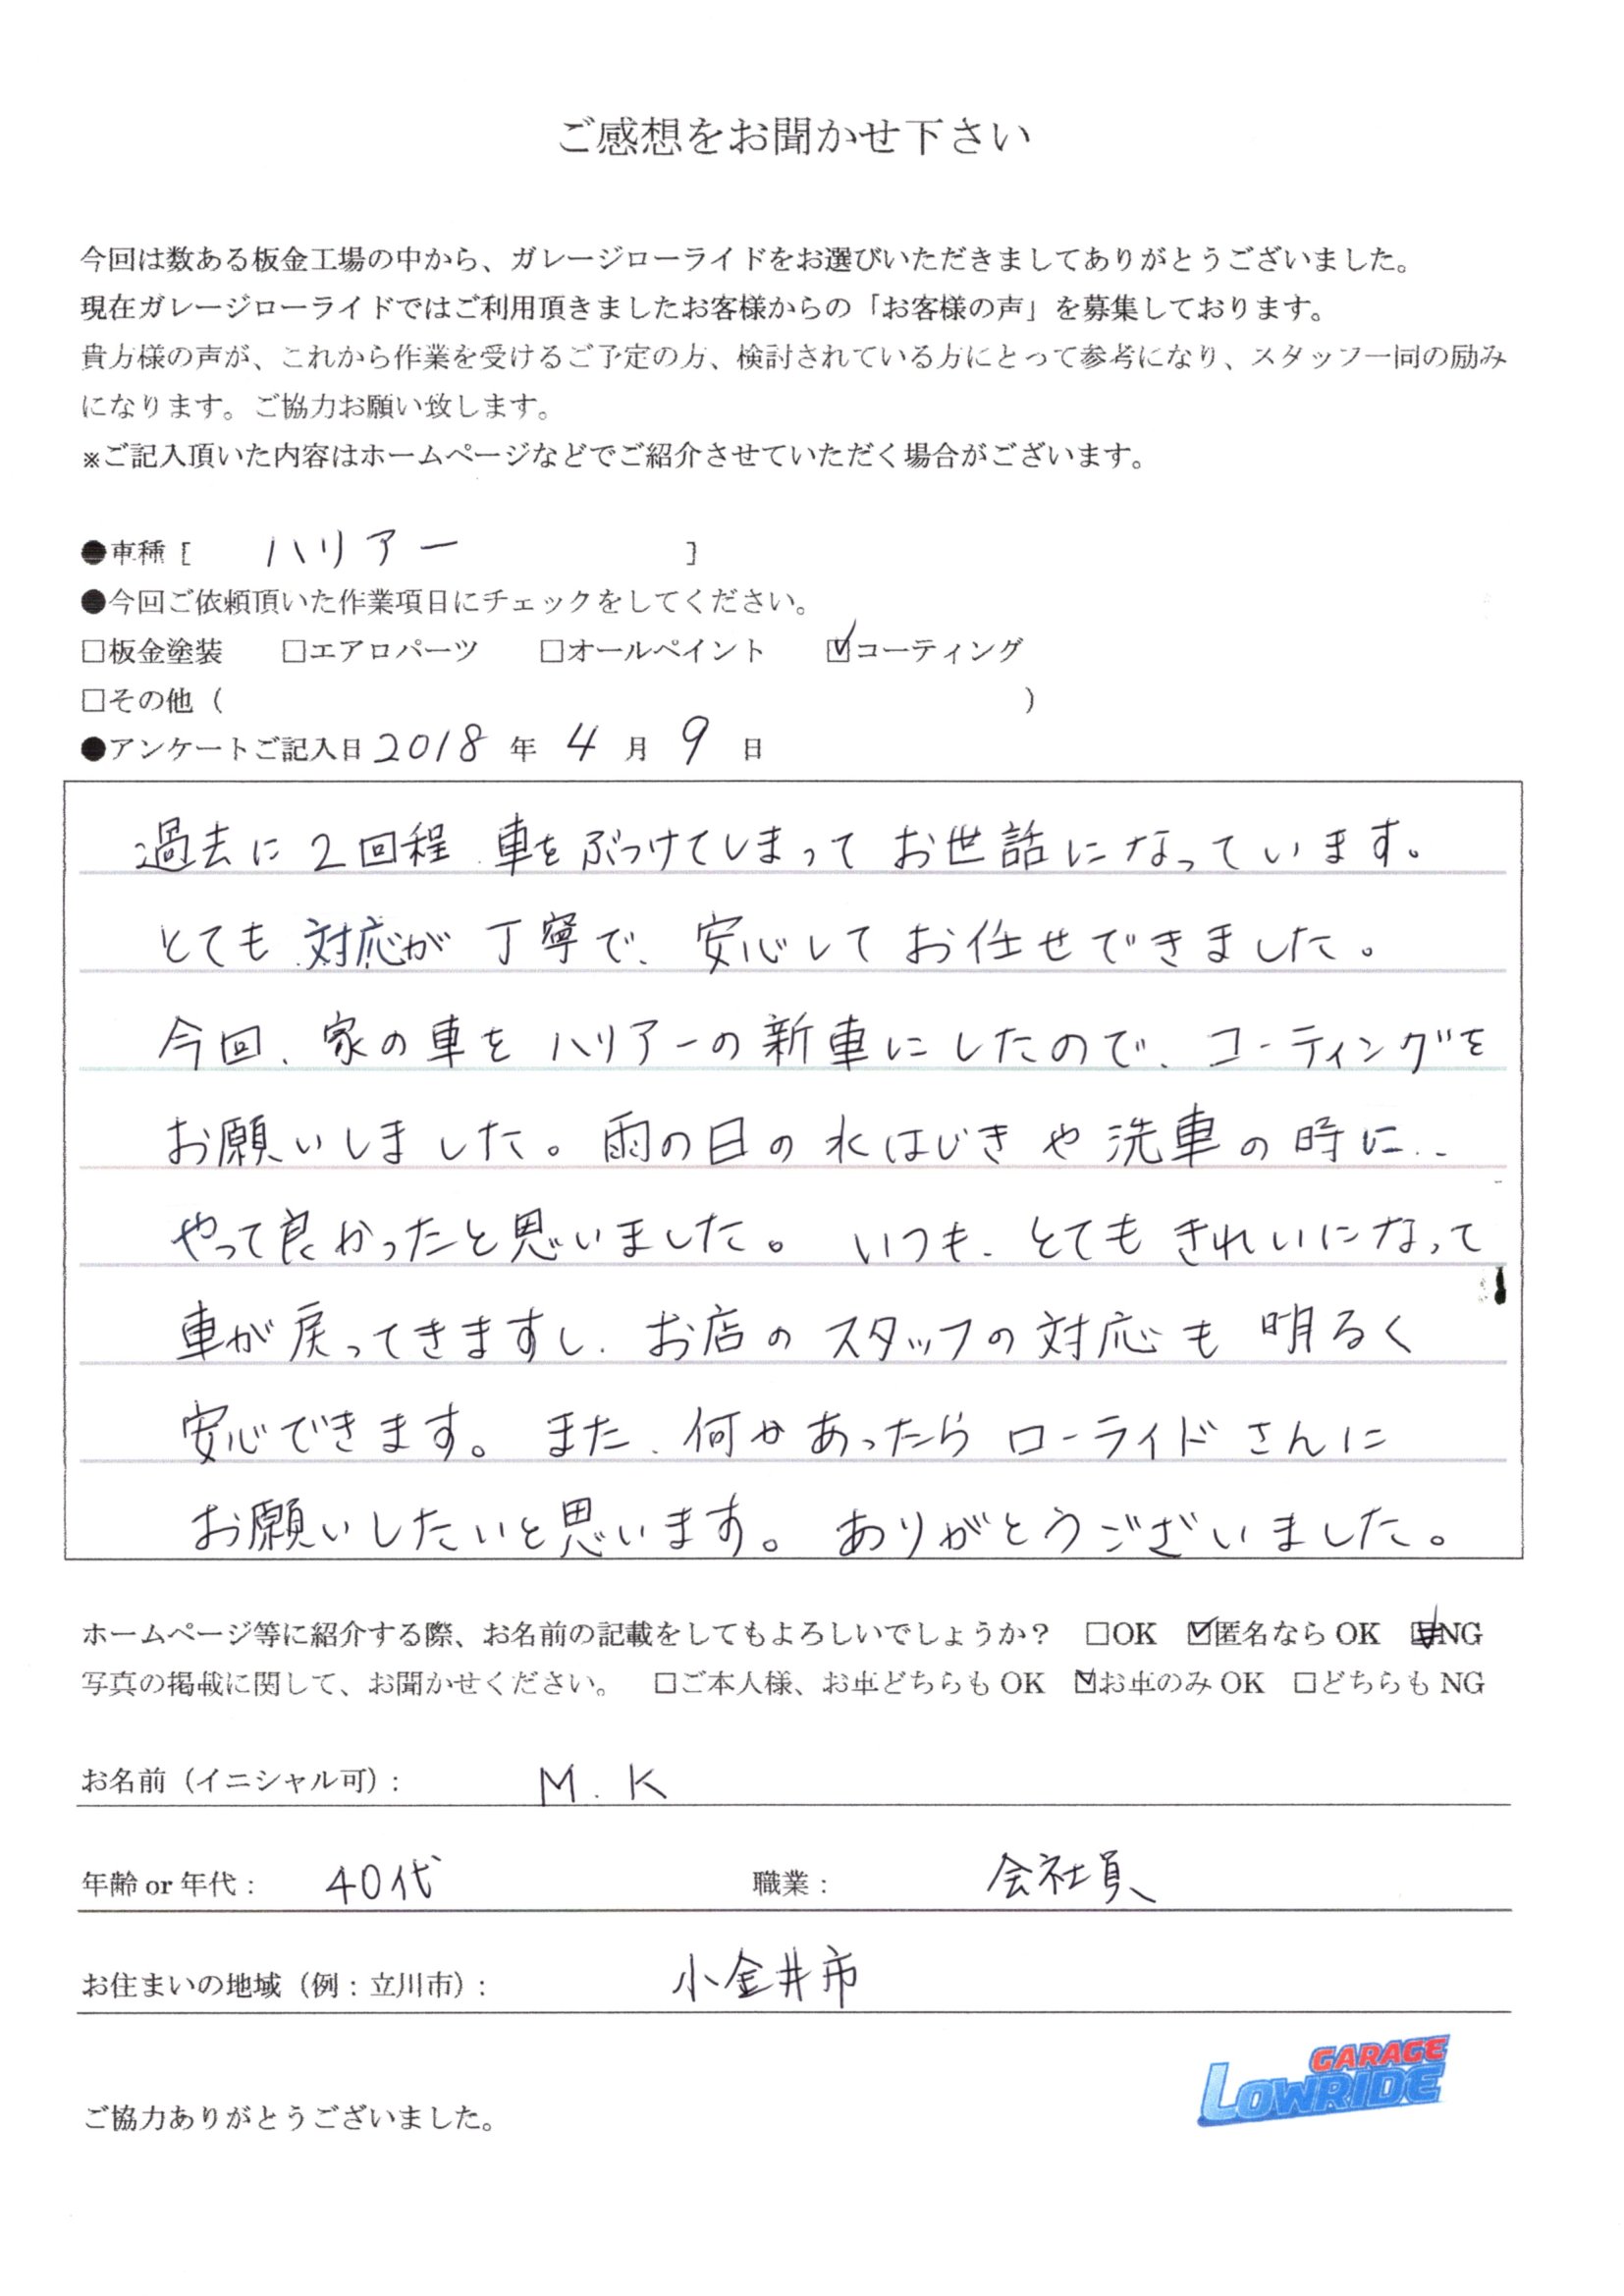 ご感想をお聞かせ下さい
今回は数ある板金工場の中から、ガレージローライドをお選びいただきましてありがとうございました。
現在ガレージローライドではご利用頂きましたお客様からの「お客様の声」を募集しております。
貴方様の声が、これから作業を受けるご予定の方、検討されている方にとって参考になり、スタッフ一同の励み
になります。ご協力お願い致します。
※ご記入頂いた内容はホームページなどでご紹介させていただく場合がございます。
●車種 [ ハリアー ]
●今回ご依頼頂いた作業項目にチェックをしてください。
□板金塗装 □エアロパーツ □オールペイント ☑コーティング
□その他（ ）
●アンケートご記入日 2018 年 4 月 9 日
過去に2回程、車をぶつけてしまってお世話になっています。
とても対応が丁寧で、安心してお任せできました。
今回、家の車をハリアーの新車にしたので、コーティングを
お願いしました。雨の日の水はじきや洗車の時に、
やって良かったと思いました。いつも、とてもきれいになって
車が戻ってきますし、お店のスタッフの対応も明るく
安心できます。また、何かあったらローライドさんに
お願いしたいと思います。ありがとうございました。
ホームページ等に紹介する際、お名前の記載をしてもよろしいでしょうか？ □OK ☑匿名なら OK ☑NG
写真の掲載に関して、お聞かせください。 □ご本人様、お車どちらも OK ☑お車のみ OK □どちらも NG
お名前（イニシャル可）： M.K
年齢 or 年代： 40代 職業： 会社員
お住まいの地域（例：立川市）： 小金井市
GARAGE
LOWRIDE
ご協力ありがとうございました。